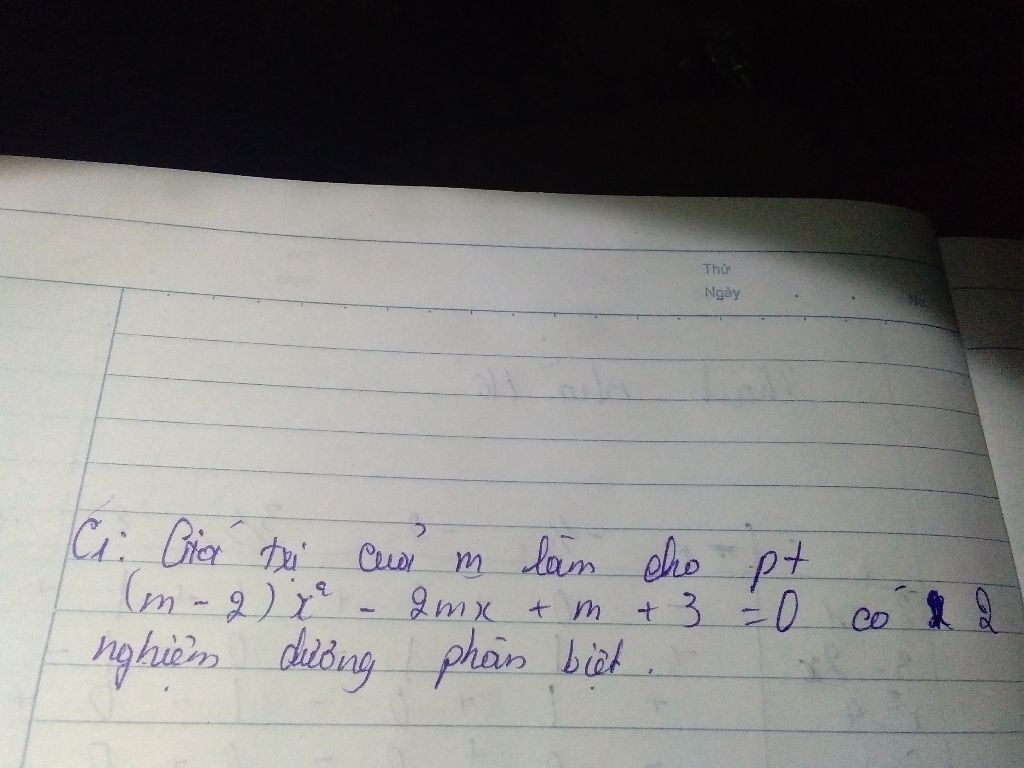 Thứ
Ngày
C1: Giá trị của m làm cho pt
(m - 2)x² - 2mx + m + 3 = 0 có 2
nghiệm dương phân biệt.